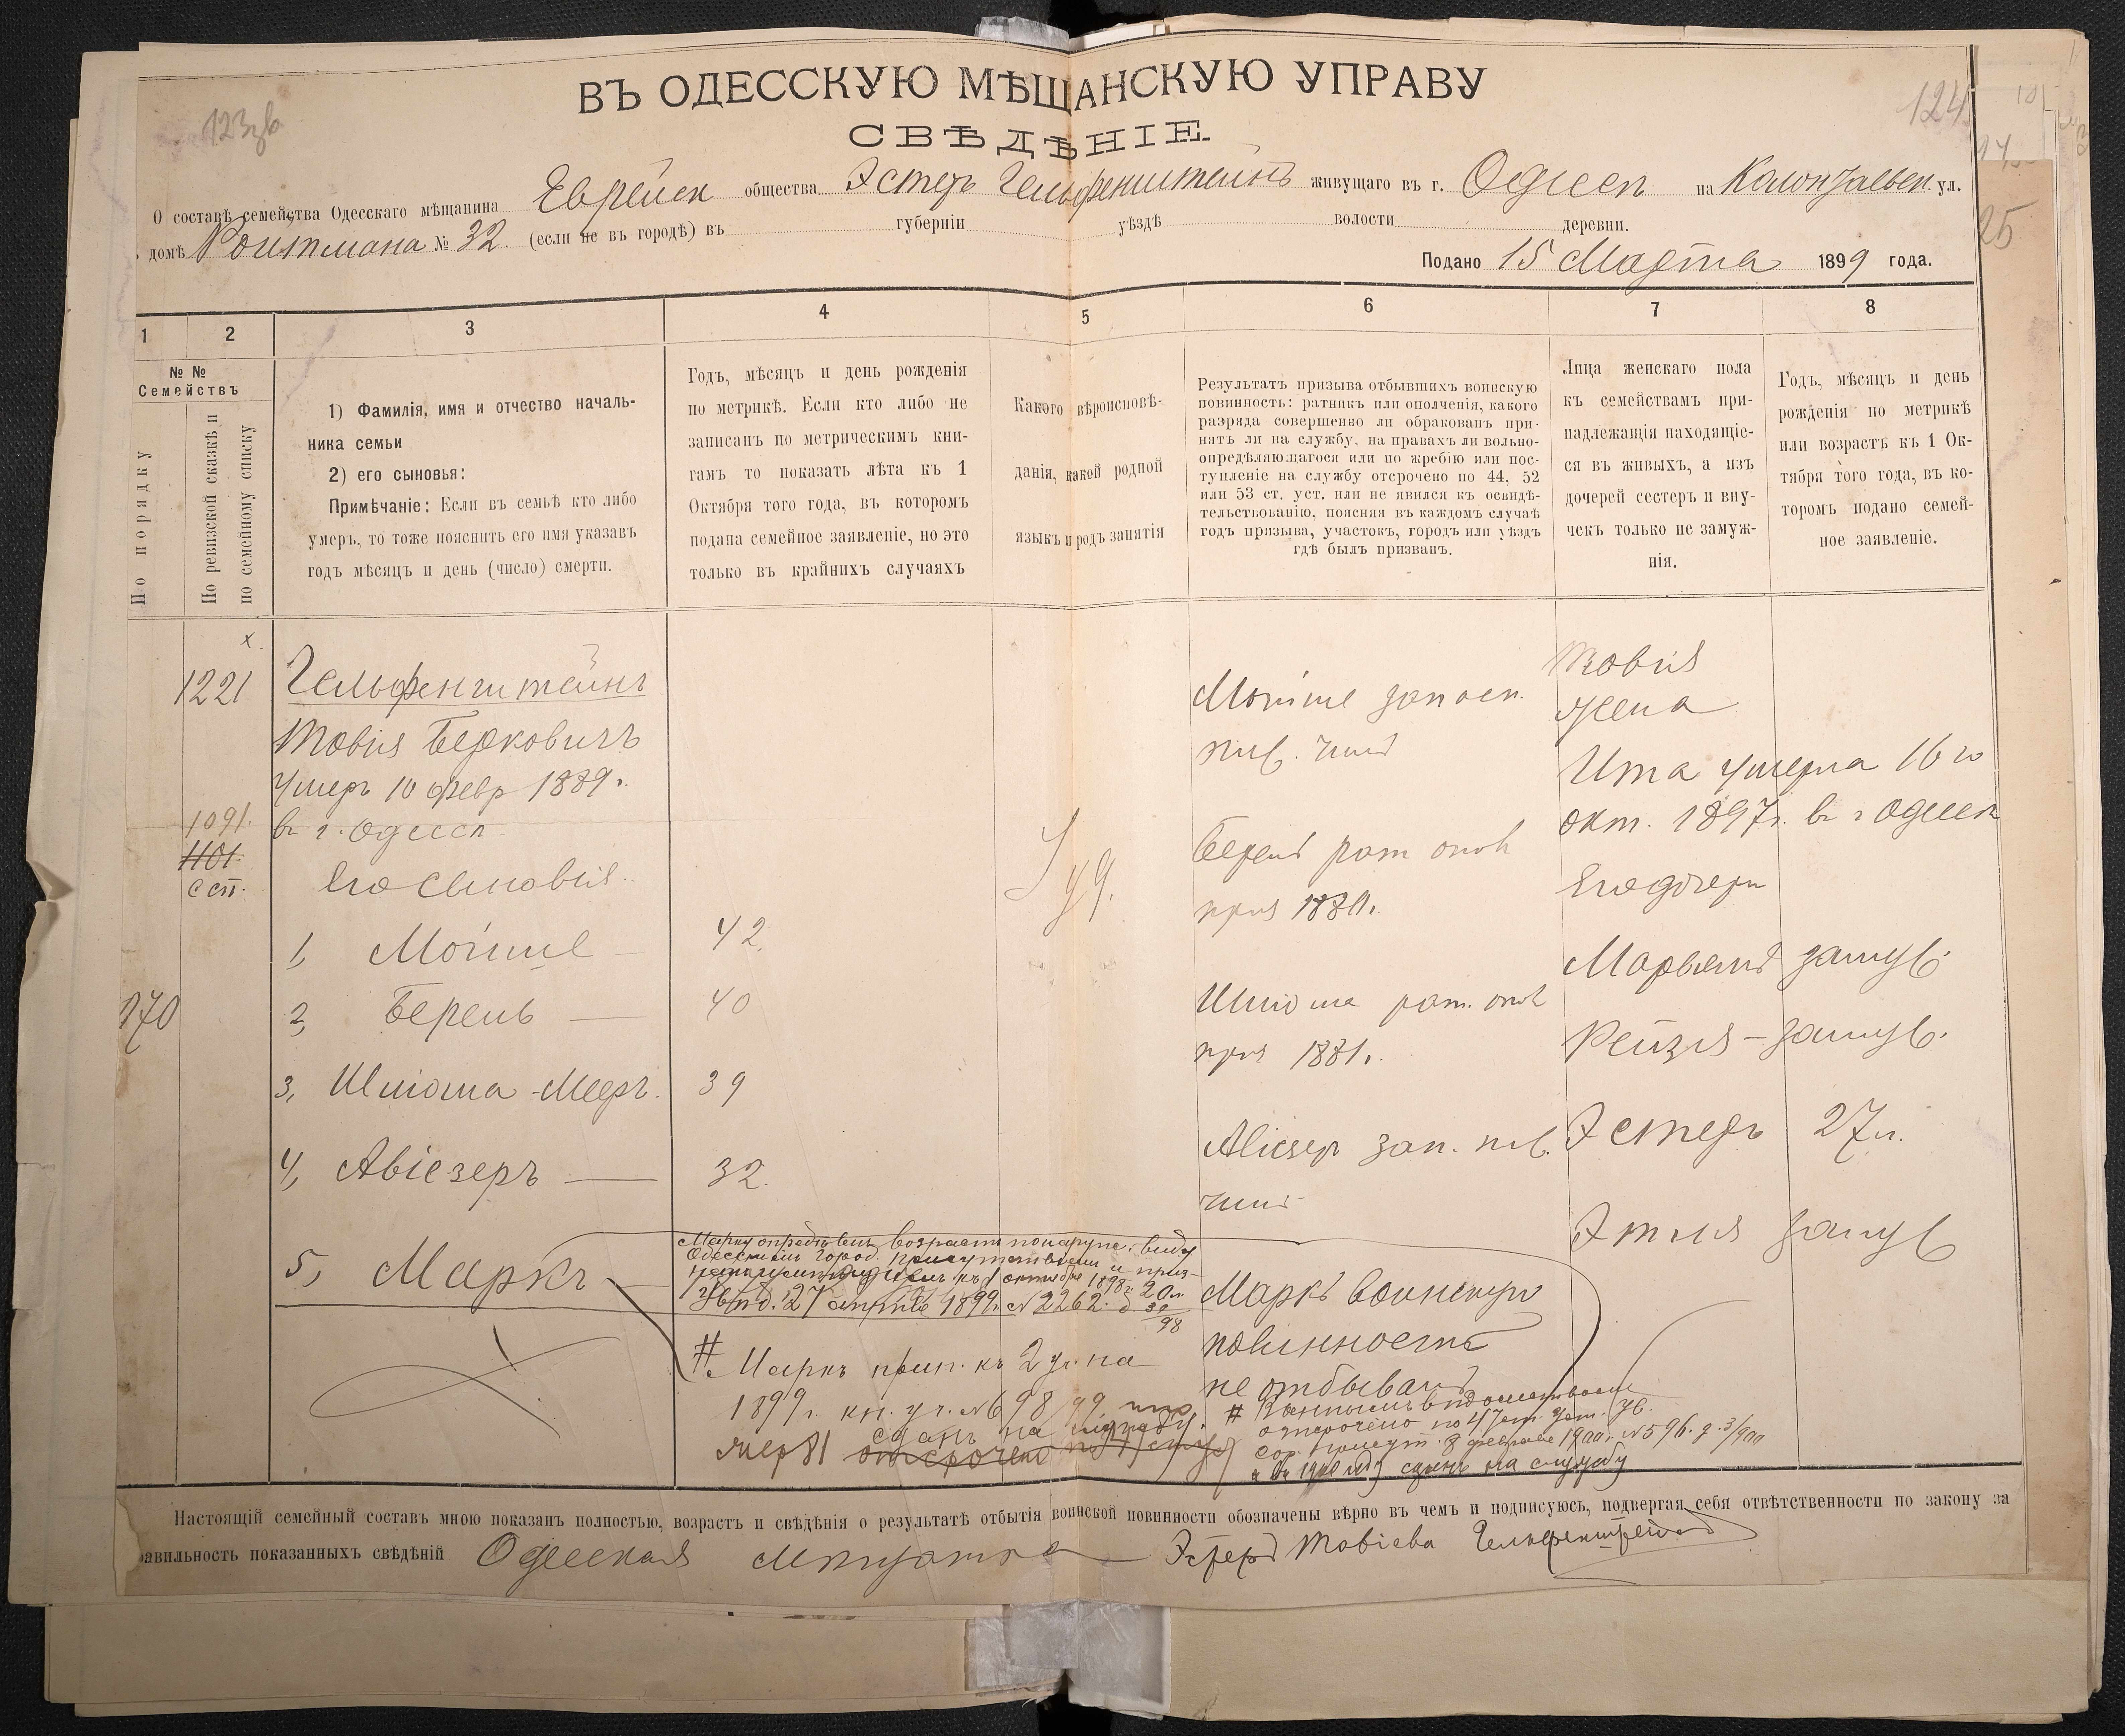 ВЪ ОДЕССКУЮ МѢЩАНСКУЮ УПРАВУ
СВѢДѢНІЕ.
124
О составѣ семейства Одесскаго мѣщанина Еврейск общества Эстеръ Гельфенштейнъ живущаго въ г. Одессѣ на ул.
домѣ Ройтмана № 32. (если не въ городѣ) въ губерніи уѣздѣ волости деревни.
Подано 15 Марта 1899 года.
25
1 2 3 4 5 6 7 8
№ №
Семействъ
По порядку
По ревизской сказкѣ и
по семейному списку
1) Фамилія, имя и отчество началь-
ника семьи
2) его сыновья:
Примѣчаніе: Если въ семьѣ кто либо
умеръ, то тоже пояснить его имя указавъ
годъ мѣсяцъ и день (число) смерти.
Годъ, мѣсяцъ и день рожденія
по метрикѣ. Если кто либо не
записанъ по метрическимъ кни-
гамъ то показать лѣта къ 1
Октября того года, въ которомъ
подана семейное заявленіе, но это
только въ крайнихъ случаяхъ
Какого вѣроисповѣ-
данія, какой родной
языкъ и родъ занятія
Результатъ призыва отбывшихъ воинскую
повинность: ратникъ или ополченія, какого
разряда совершенно ли обракованъ при-
нятъ ли на службу. на правахъ ли вольно-
опредѣляющагося или по жребію или пос-
тупленіе на службу отсрочено по 44, 52
или 53 ст. уст. или не явился къ освидѣ-
тельствованію, поясняя въ каждомъ случаѣ
годъ призыва, участокъ, городъ или уѣздъ
гдѣ былъ призванъ.
Лица женскаго пола
къ семействамъ при-
надлежащія находящіе-
ся въ живыхъ, а изъ
дочерей сестеръ и вну-
чекъ только не замуж-
нія.
Годъ, мѣсяцъ и день
рожденія по метрикѣ
или возрастъ къ 1 Ок-
тября того года, въ ко-
торомъ подано семей-
ное заявленіе.
х.
1221
1091.
1101.
с сп.
270
Гельфенштейнъ
Товія Берковичъ
Умеръ 10 февр 1889 г.
въ г. Одессѣ
Его сыновья.
1, Мойше — 42.
2, Берель — 40
3, Шлiома-Меръ. 39
4, Авіезеръ — 32.
5, Маркъ —
Іуд.
Мойше запасн.
ниж. чинъ
Берель рат опол
приз 1880 г.
Шлiома рат. опол
приз 1881 г.
Авіезеръ зап. ниж.
чинъ
Маркъ воинскую
повинность
не отбывалъ
Товія
жена
Ита умерла 16 го
окт. 1897 г. въ г Одессѣ
Его дочери
Марьямъ замуж.
Рейзя — замуж.
Эстеръ 27 л.
Этля замуж
Марку опредѣленъ возрастъ по наружн. виду
Одесскимъ Город. Присутствіемъ
къ 1 октября 1898 г. 20 л.
27 апрѣля 1899 г. № 2262.
# Маркъ прип. къ 2 уч. на
1899 г. кн. уч. № 698/99
жер 81 сданъ на службу.
отсрочено по
#
отсрочено по 47 ст. Уст.
февраля 1900 г. № 596. д. 3/900
сданъ на службу
Настоящій семейный составъ мною показанъ полностью, возрастъ и свѣдѣнія о результатѣ отбытія воинской повинности обозначены вѣрно въ чемъ и подписуюсь, подвергая себя отвѣтственности по закону за
равильность показанныхъ свѣдѣній Одесская мѣщанка Эстеръ Товіева Гельфенштейнъ